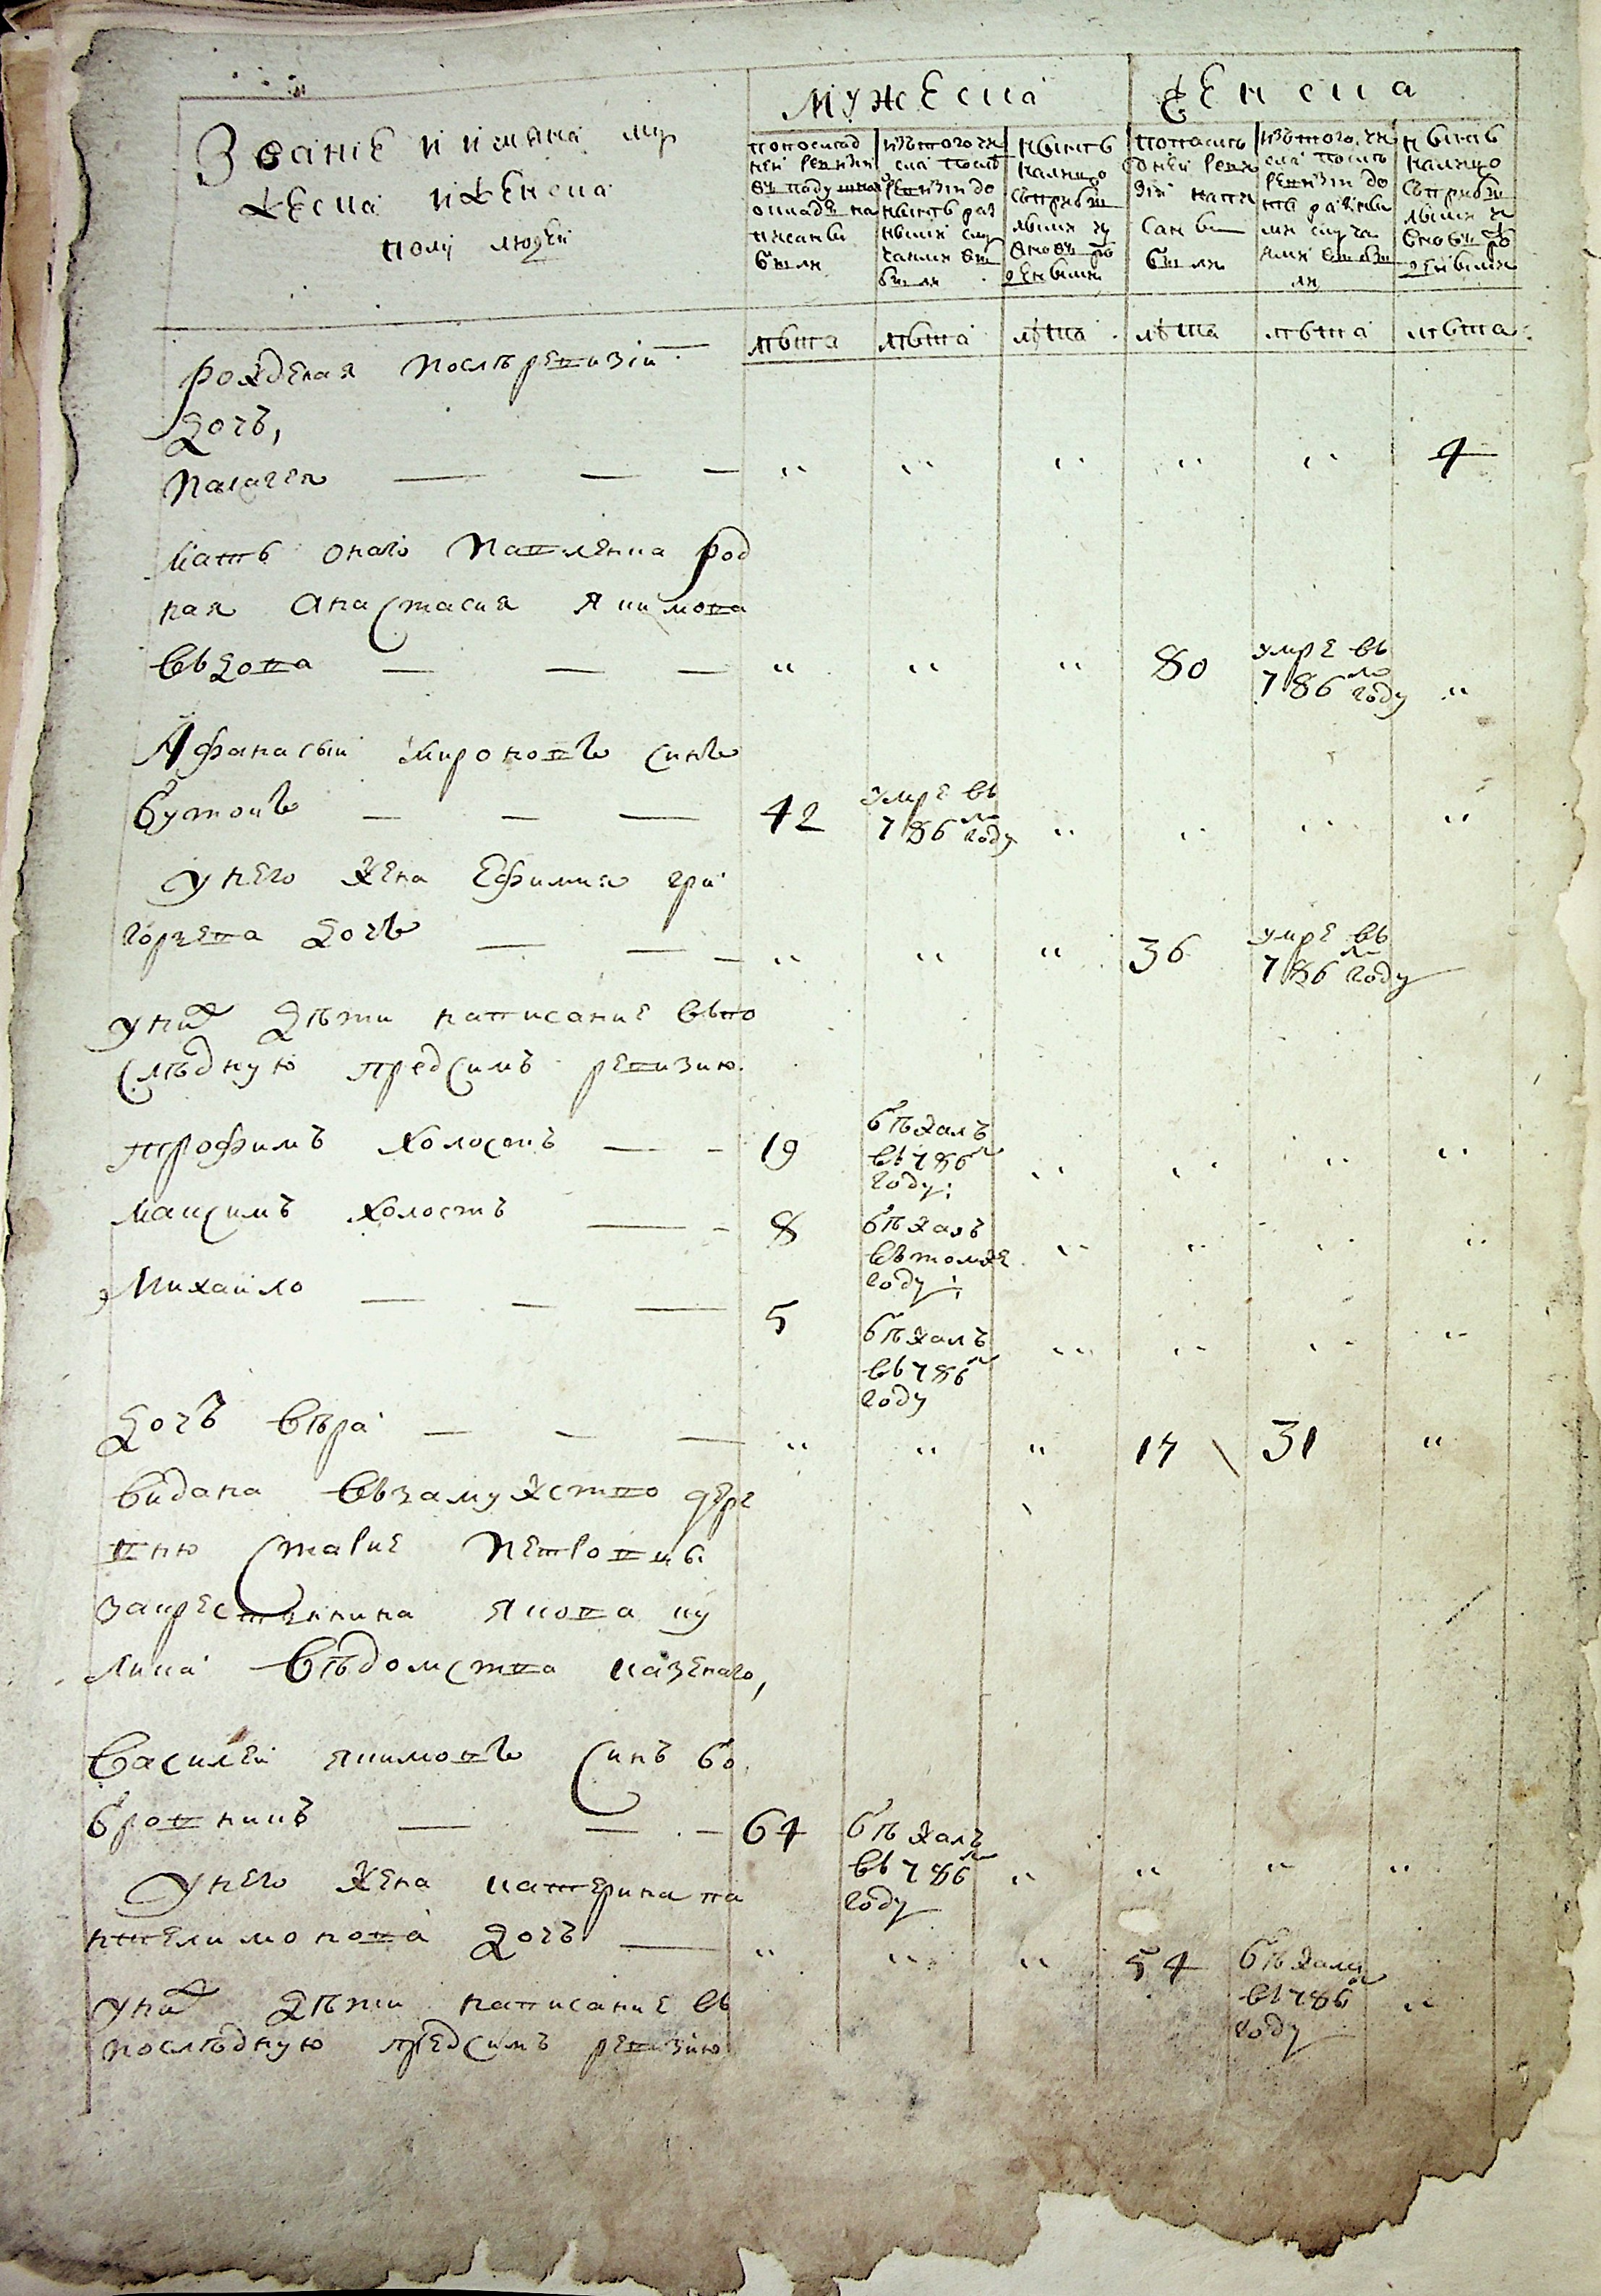 Мужеска
Женска
Звание и имяна му
жеска и женска
полу людей
попослед
ней ревизии
въ подушной
окладе на
писаны
были
изътого чи
сла посл
ревизии до
ныне раз
ными слу
чаями вы
были
ныне
налицо
съприбы
лыми и
вновь ро
жденными
попослъ
дней реви
зии напи
саны
были
изътого чи
сла послъ
ревизии до
нъ разны
ми случа
ями выбы
ли
ныне
налицо
съприбы
лыми и
вновь ро
жденными
лъта лъта лъта лъта лъта лъта
рожденая послъ ревизии
дочъ,
Палагея — — — " " " " " 4
мать онаго Павленка род
ная Анастасия Якимова
въдова — — — " " " 80 умре въ 786м году "
Афанасый Мироновъ синъ
Бутокъ — — — 42 умре въ 786м году " " " "
унего жена Ефимия гри
горъева дочъ — — — " " " 36 умре въ 786м году
унихъ дъти написание въпо
слъдную предсимъ ревизию.
трофимъ холостъ — - 19 бъжалъ въ 786м году; " " " "
Максимъ холостъ — - 8 бъжалъ въ томже году; " " " "
Михайло — — — 5 бъжалъ въ 786м году " " " "
дочъ въра — — — " " " 17 31 "
видана възамужство дере
вню Старие Петровки
закрестянина Якова ку
лика въдомства казенаго,
Василей Якимовъ Синъ бо
бровникъ — — - 64 бъжалъ въ 786м году " " " "
унего жена катерина па
нтелимонова дочъ — " " " 54 бъжала въ 786м году "
унихъ дъти написание въ
послъдную предсимъ ревизию